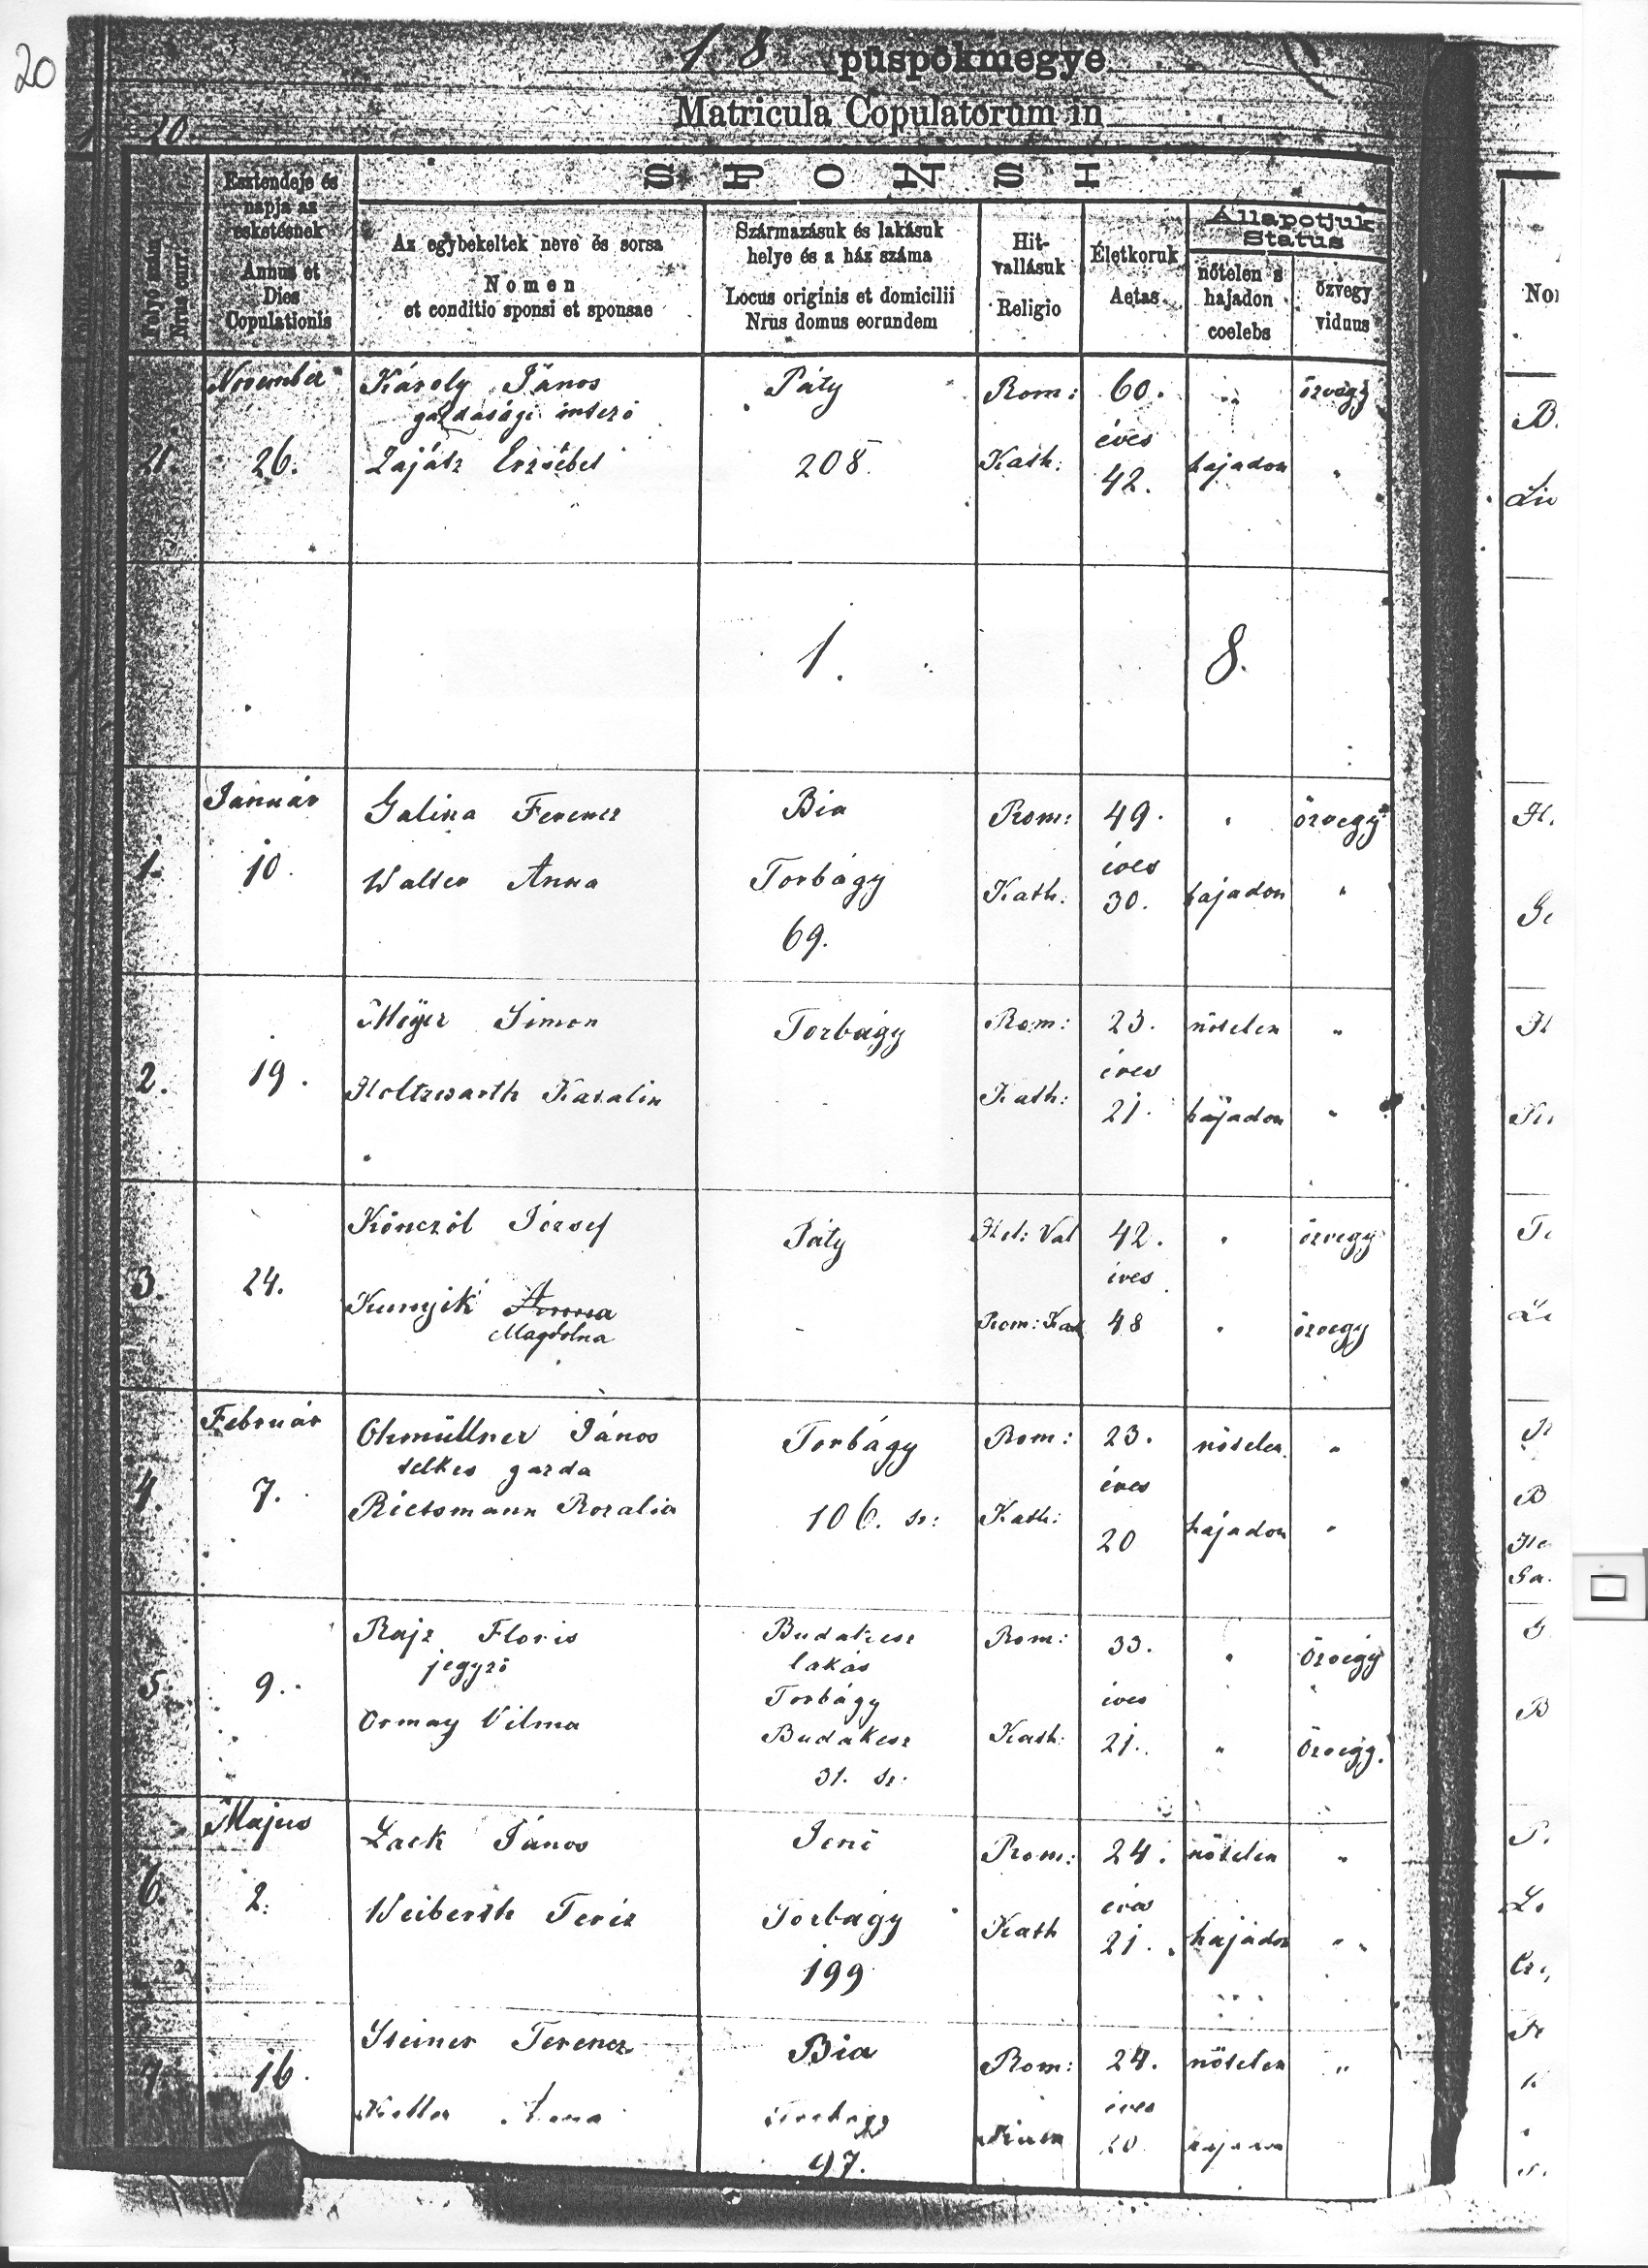 20
1 8 püspökmegye
Matricula Copulatorum in
10.
SPONSI
Folyó szám
Nrus curr.
Esztendeje és
napja az
esketésnek
Annus et
Dies
Copulationis
Az egybekeltek neve és sorsa
Nomen
et conditio sponsi et sponsae
Származásuk és lakásuk
helye és a ház száma
Locus originis et domicilii
Nrus domus eorundem
Hit-
vallásuk
Religio
Életkoruk
Aetas
Állapotjuk
Status
nőtelen s
hajadon
coelebs
özvegy
viduus
Nov
November Károly János Páty Rom: 60. „ özvegy
gazdasági intéző
éves
21. 26. Zajátz Erzsébet 208. Kath: 42. hajadon „
1. 8.
Január Galina Ferencz Bia Rom: 49. „ özvegy
éves
1. 10. Walter Anna Torbágy Kath: 30. hajadon „
69.
Méyer Simon Torbágy Rom: 23. nőtelen „
éves
2. 19. Holtzwarth Katalin Kath: 21. hajadon „
Könczöl József Páty Hel: Val 42. „ özvegy
éves
3. 24. Kunyik Anna - Rom: Kat 48 „ özvegy
Magdolna
Február Ohmüllner János Torbágy Rom: 23. nőtelen „
telkes gazda
éves
4. 7. Rietsmann Rozalia 106. sz: Kath: 20 hajadon „
Rajz Floris Budakesz Rom: 33. „ özvegy
jegyző lakás
5. 9. Torbágy éves
Ormay Vilma Budakesz Kath: 21. „ özvegy.
31. sz:
Majus Zack János Jenő Rom: 24. nőtelen „
éves
6. 2. Weiberth Teréz Torbágy Kath 21. hajadon „
199
Steiner Ferencz Bia Rom: 24. nőtelen „
7. 16. éves
Keller Anna Torbágy 20.
97.